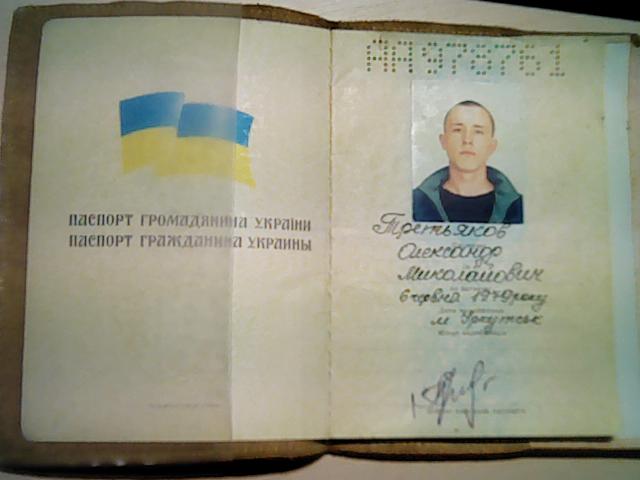 ПАСПОРТ ГРОМАДЯНИНА УКРАЇНИ
ПАСПОРТ ГРАЖДАНИНА УКРАИНЫ
АА978761
Третьяков
Олександр
Миколайович
6 червня 1979 року
м